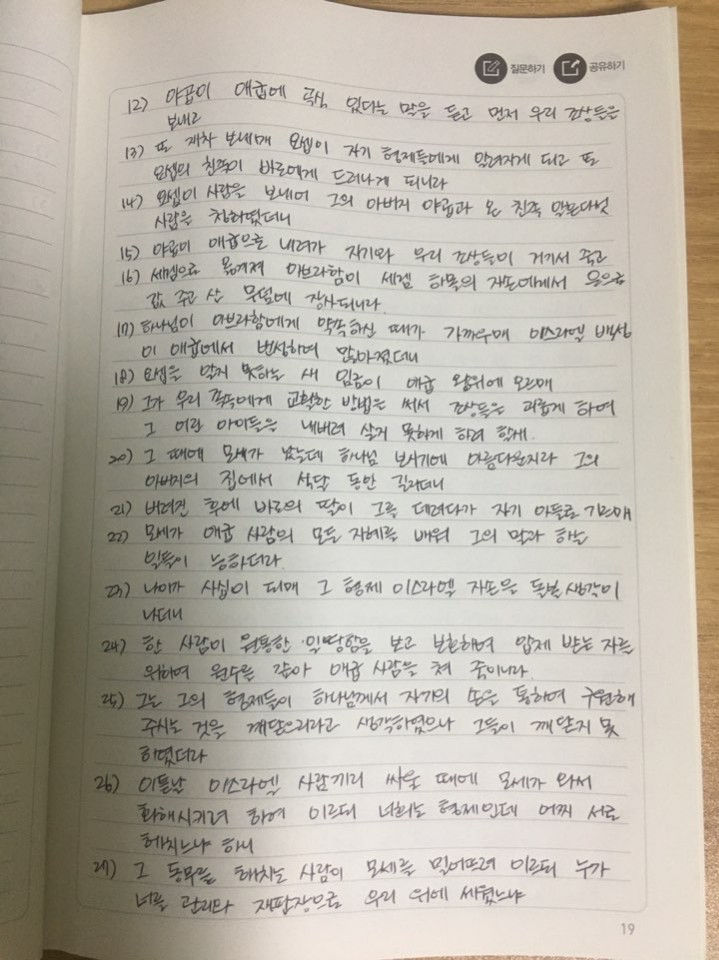 질문하기 공유하기
12) 야곱이 애굽에 곡식 있다는 말을 듣고 먼저 우리 조상들은
보내고
13) 또 재차 보내매 요셉이 자기 형제들에게 알려지게 되고 또
요셉의 친족이 바로에게 드러나게 되니라
14) 요셉이 사람을 보내어 그의 아버지 야곱과 온 친족 일흔다섯
사람을 청하였더니
15) 야곱이 애굽으로 내려가 자기와 우리 조상들이 거기서 죽고
16) 세겜으로 옮겨져 아브라함이 세겜 하몰의 자손에게서 은으로
값 주고 산 무덤에 장사되니라
17) 하나님이 아브라함에게 약속하신 때가 가까우매 이스라엘 백성
이 애굽에서 번성하여 많아졌더니
18) 요셉을 알지 못하는 새 임금이 애굽 왕위에 오르매
19) 그가 우리 족속에게 교활한 방법을 써서 조상들을 괴롭게 하여
그 어린 아이들을 내버려 살지 못하게 하려 할새
20) 그 때에 모세가 났는데 하나님 보시기에 아름다운지라 그의
아버지의 집에서 석달 동안 길리더니
21) 버려진 후에 바로의 딸이 그를 데려다가 자기 아들로 기르매
22) 모세가 애굽 사람의 모든 지혜를 배워 그의 말과 하는
일들이 능하더라
23) 나이가 사십이 되매 그 형제 이스라엘 자손을 돌볼 생각이
나더니
24) 한 사람이 원통한 일 당함을 보고 보호하여 압제 받는 자를
위하여 원수를 갚아 애굽 사람을 쳐 죽이니라
25) 그는 그의 형제들이 하나님께서 자기의 손을 통하여 구원해
주시는 것을 깨달으리라고 생각하였으나 그들이 깨닫지 못
하였더라
26) 이튿날 이스라엘 사람끼리 싸울 때에 모세가 와서
화해시키려 하여 이르되 너희는 형제인데 어찌 서로
해치느냐 하니
27) 그 동무를 해치는 사람이 모세를 밀어뜨려 이르되 누가
너를 관리와 재판장으로 우리 위에 세웠느냐
19